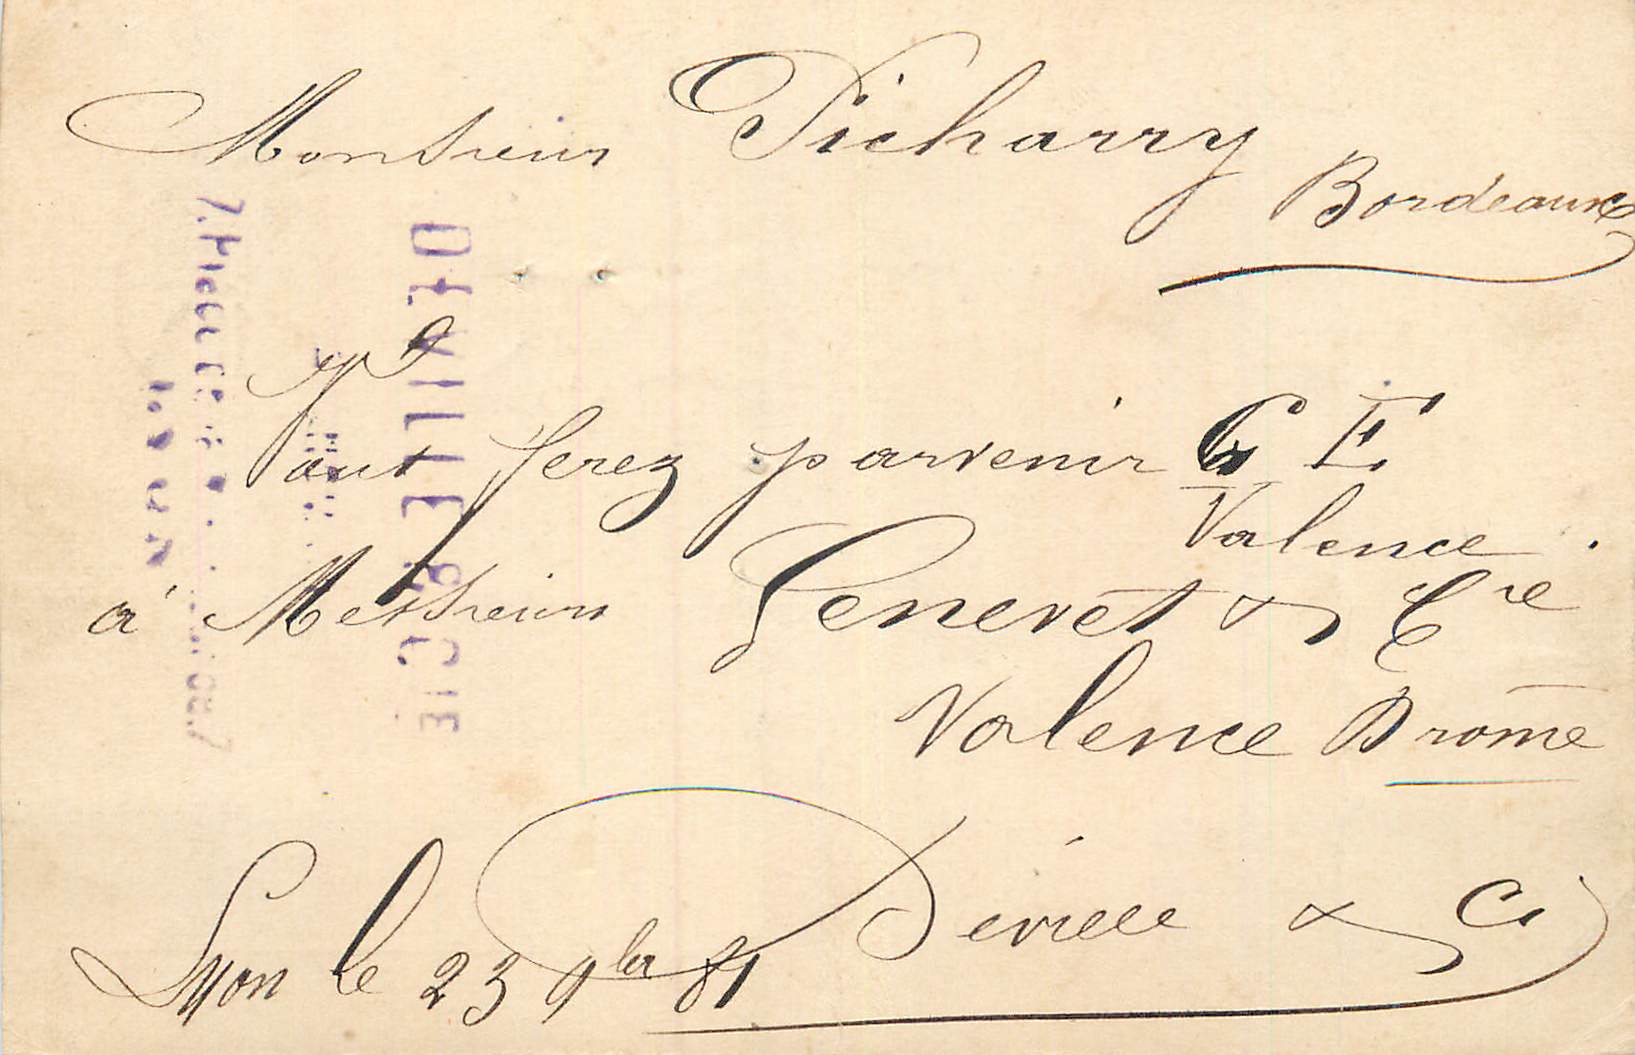 Monsieur Picharry
Bordeaux
ferez parvenir G E
Valence.
à Messieurs Genevet & Cie
Valence Drome
Lyon le 23 9bre 81 Deville & Ci
DEVILLE & CIE